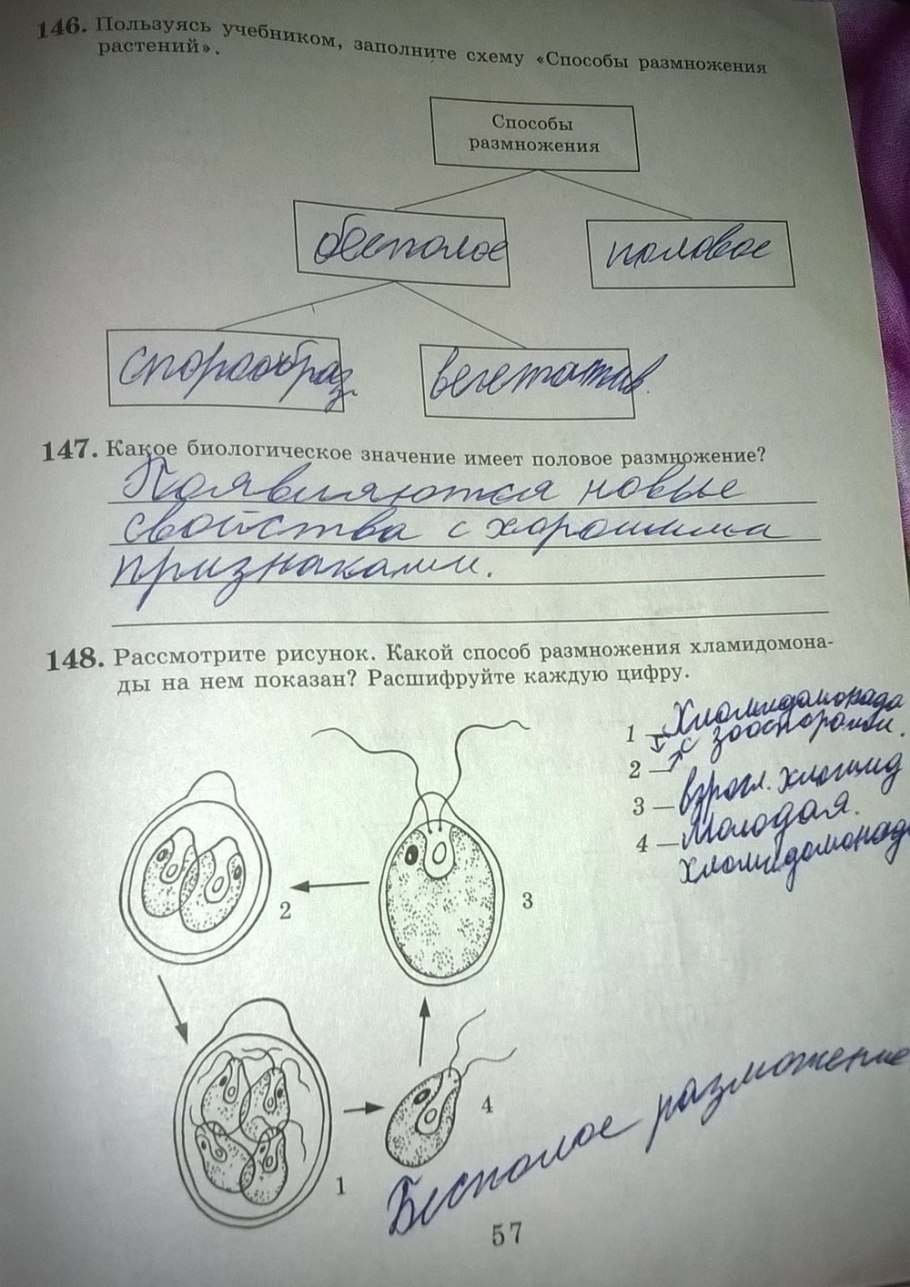 146. Пользуясь учебником, заполните схему «Способы размножения
растений».
Способы
размножения
бесполое
половое
спорообраз.
вегетатив.
147. Какое биологическое значение имеет половое размножение?
Появляются новые
свойства с хорошими
признаками.
148. Рассмотрите рисунок. Какой способ размножения хламидомона-
ды на нем показан? Расшифруйте каждую цифру.
1 — Хламидомонада
2 — с зооспорами.
3 — взросл. хламид
4 — Молодая.
хламидомонада
2
3
4
1
Бесполое разможение
57